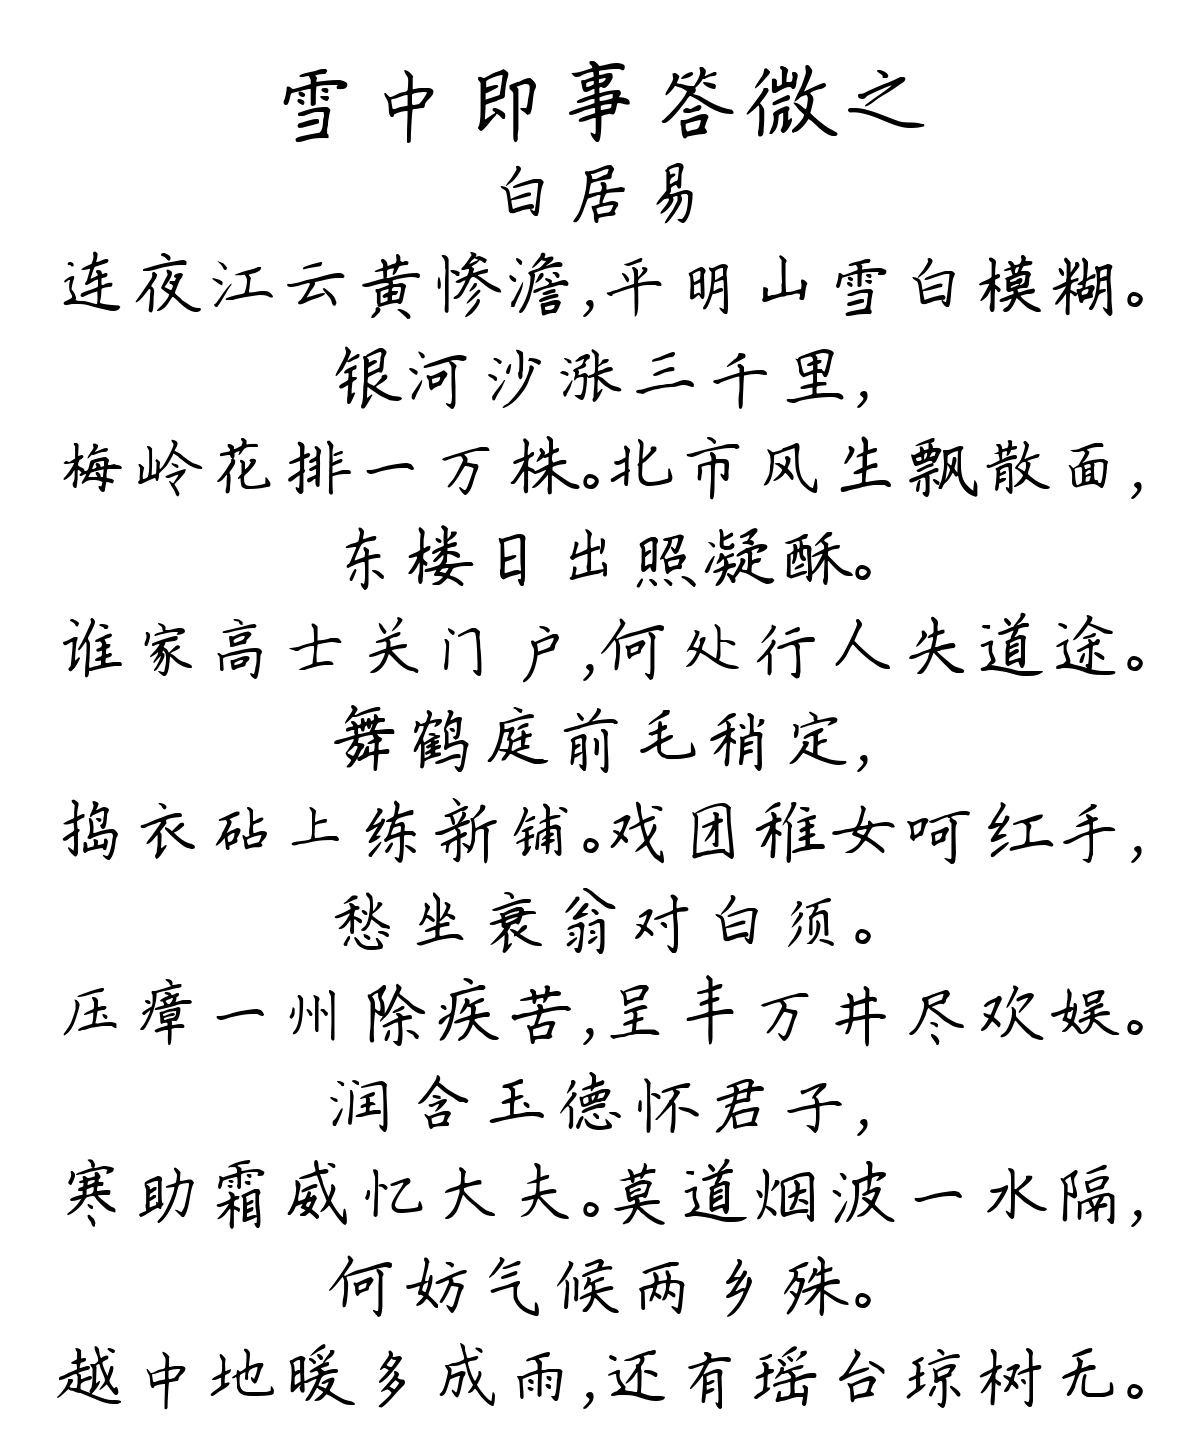 雪中即事答微之
白居易
连夜江云黄惨澹,平明山雪白模糊。
银河沙涨三千里,
梅岭花排一万株。北市风生飘散面,
东楼日出照凝酥。
谁家高士关门户,何处行人失道途。
舞鹤庭前毛稍定,
捣衣砧上练新铺。戏团稚女呵红手,
愁坐衰翁对白须。
压瘴一州除疾苦,呈丰万井尽欢娱。
润含玉德怀君子,
寒助霜威忆大夫。莫道烟波一水隔,
何妨气候两乡殊。
越中地暖多成雨,还有瑶台琼树无。